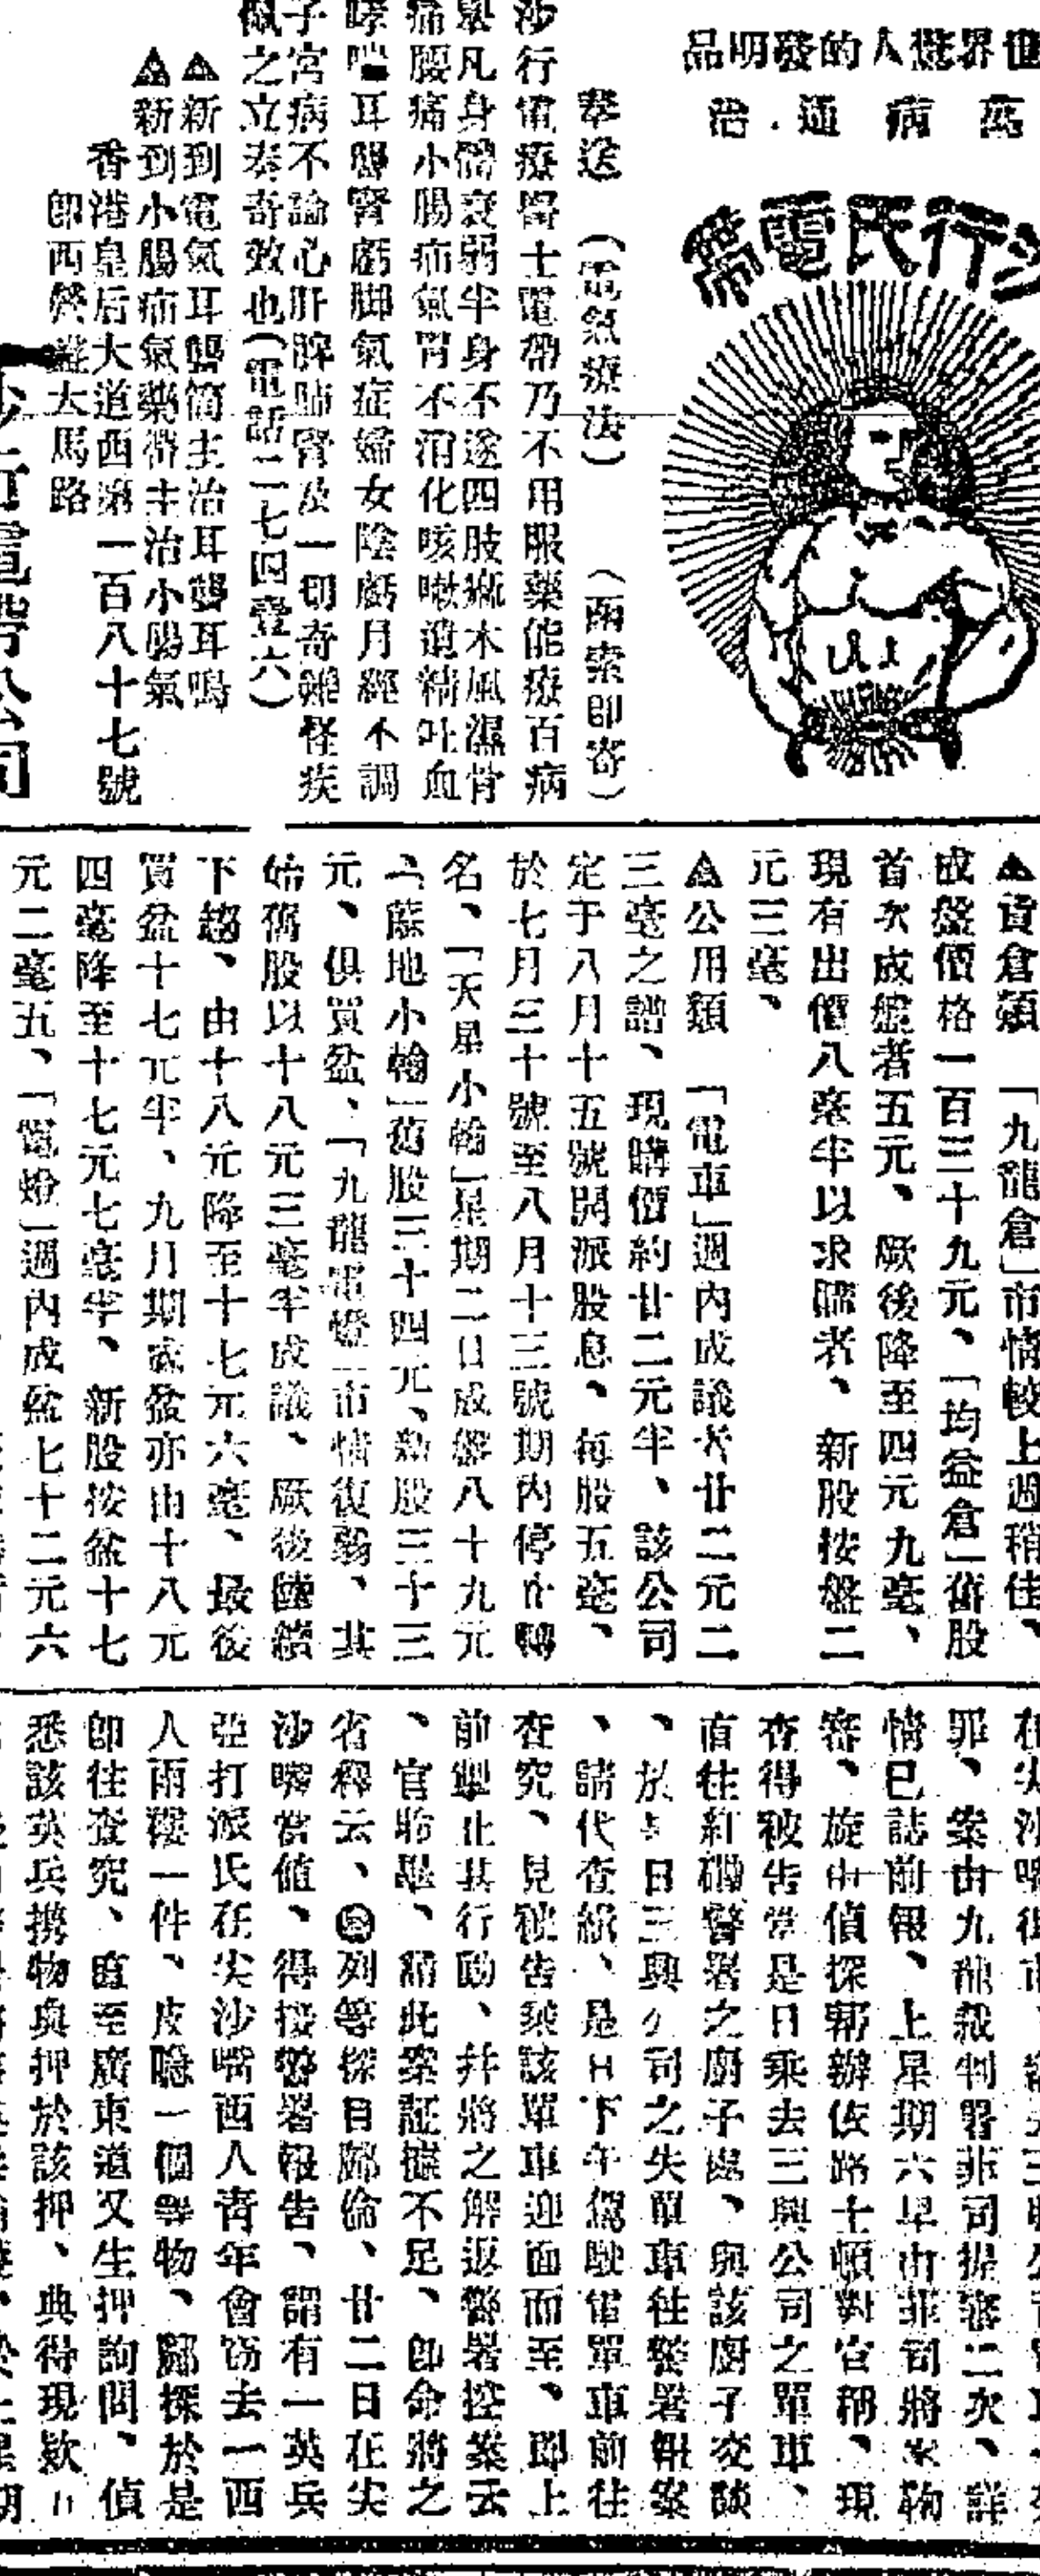 世界驚人的發明品
萬病通治
沙行氏電帶
奉送（電氣療法）（函索即寄）
沙行電療醫士電帶乃不用服藥能療百病
舉凡身體衰弱半身不遂四肢痲木風濕骨
痛腰痛小腸疝氣胃不消化咳嗽遺精吐血
哮喘耳聾腎虧脚氣症婦女陰虧月經不調
子宮病不論心肝脾肺腎及一切奇難怪疾
佩之立奏奇效也（電話二七四壹六）
▲新到電氣耳聾筒主治耳聾耳鳴
▲新到小腸疝氣藥帶主治小腸氣
香港皇后大道西第一百八十七號
即西營盤大馬路
沙行電帶公司
▲貨倉類　「九龍倉」市情較上週稍佳、
成盤價格一百三十九元、「均益倉」舊股
首次成盤者五元、厥後降至四元九毫、
現有出價八毫半以求購者、新股按盤二
元三毫、
▲公用類　「電車」週內成議者廿二元二
三毫之譜、現購價約廿二元半、該公司
定于八月十五號開派股息、每股五毫、
於七月三十號至八月十三號期內停止轉
名、「天星小輪」星期二日成盤八十九元
「油蔴地小輪」舊股三十四元、新股三十三
元、俱買盆、「九龍電燈」市情復弱、其
始舊股以十八元三毫半成議、厥後陸續
下趨、由十八元降至十七元六毫、最後
買盆十七元半、九月期成盤亦由十八元
四毫降至十七元七毫半、新股按盆十七
元二毫五、「電燈」週內成盆七十二元六
罪、案由九龍裁判署菲司提審二次、詳
情已誌前報、上星期六早由菲司將案物
審、旋由偵探帮辦佐路士頓對官稱、現
查得被告當是日乘去三興公司之單車、
直往紅磡警署之廚子處、與該廚子交談
、於是日三興公司之失單車往警署報案
、請代查緝、是日下午駕駛電單車前往
查究、見被告乘該單車迎面而至、即上
前掣止其行動、幷將之解返警署控案云
、官聆畢、謂此案証據不足、即命將之
省釋云、列等探目鄺倫、廿二日在尖
沙嘴當値、得接警署報告、謂有一英兵
亞打派氏在尖沙嘴西人青年會窃去一西
人雨褸一件、皮喼一個等物、鄺探於是
即往查究、直至廣東道又生押詢問、偵
悉該英兵携物典押於該押、典得現欵